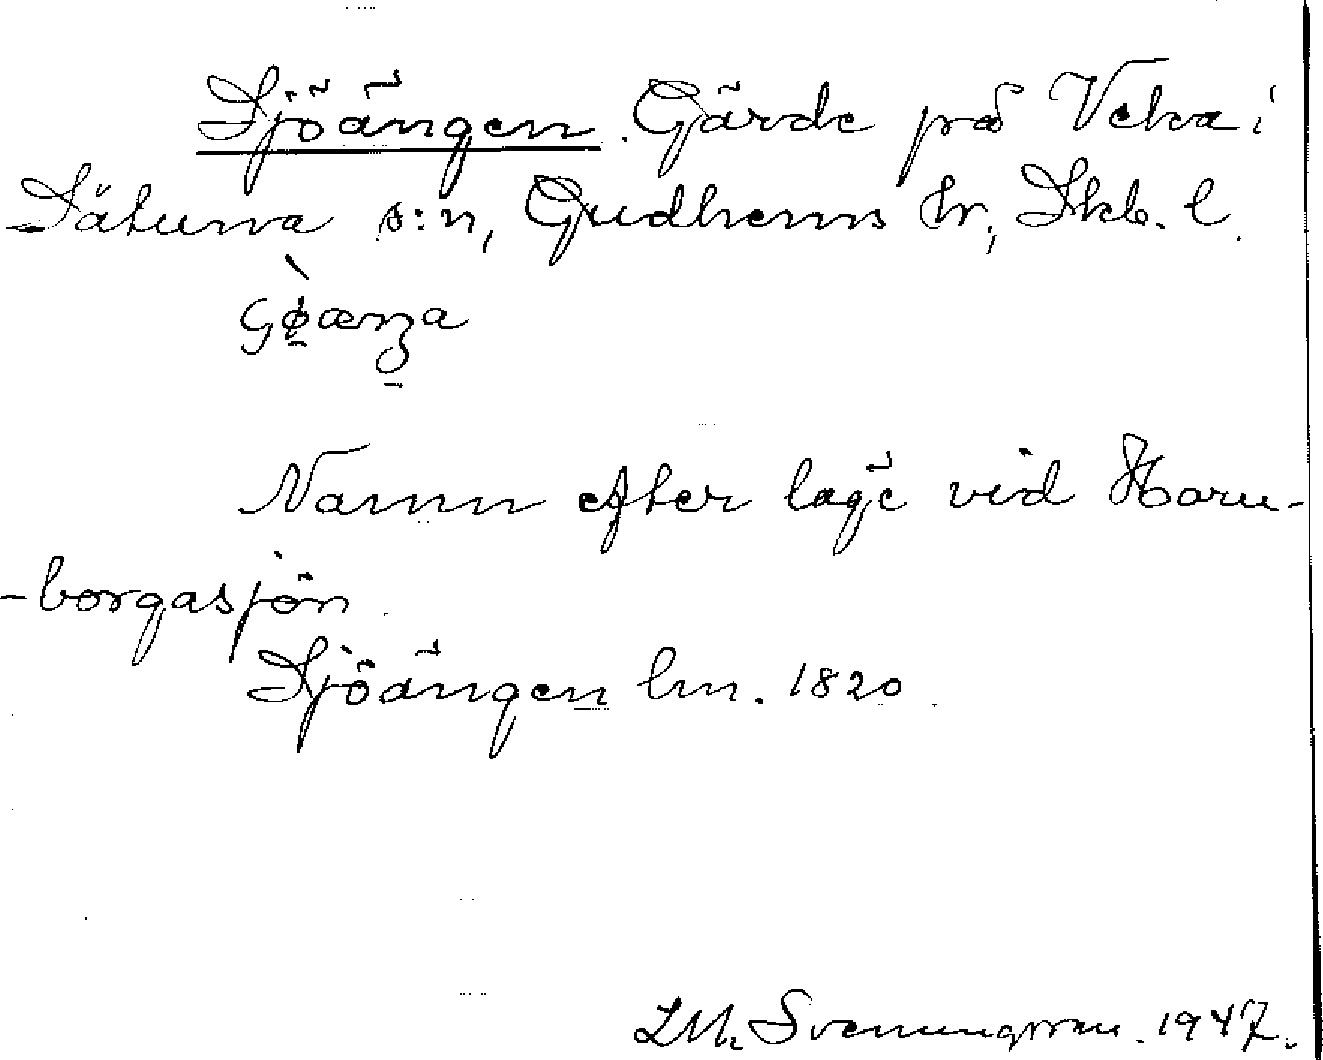 Sjöängen. Gärde på Veka i
Sätuna s:n, Gudhems hr, Skb. l.
Namn efter läge vid Horn-
-borgasjön.
Sjöängen lm. 1820.
L.M. Svenungsson. 1947.